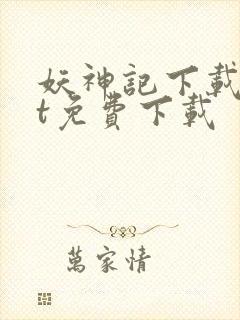 妖神記下載
t免費下載
萬家情